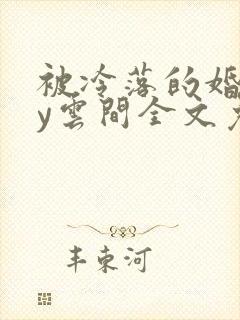 被冷落的婚
y雲間全文
丰東河